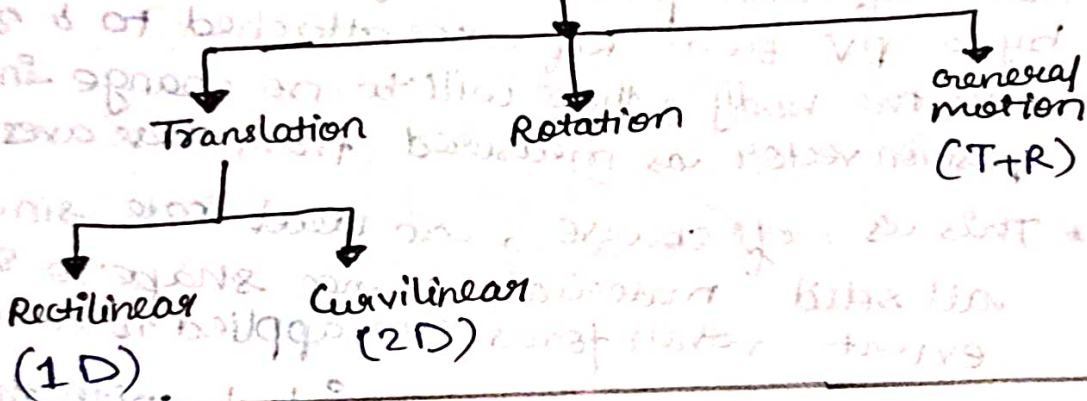 Translation
Rotation
General
motion
(T+R)
Rectilinear
(1D)
Curvilinear
(2D)